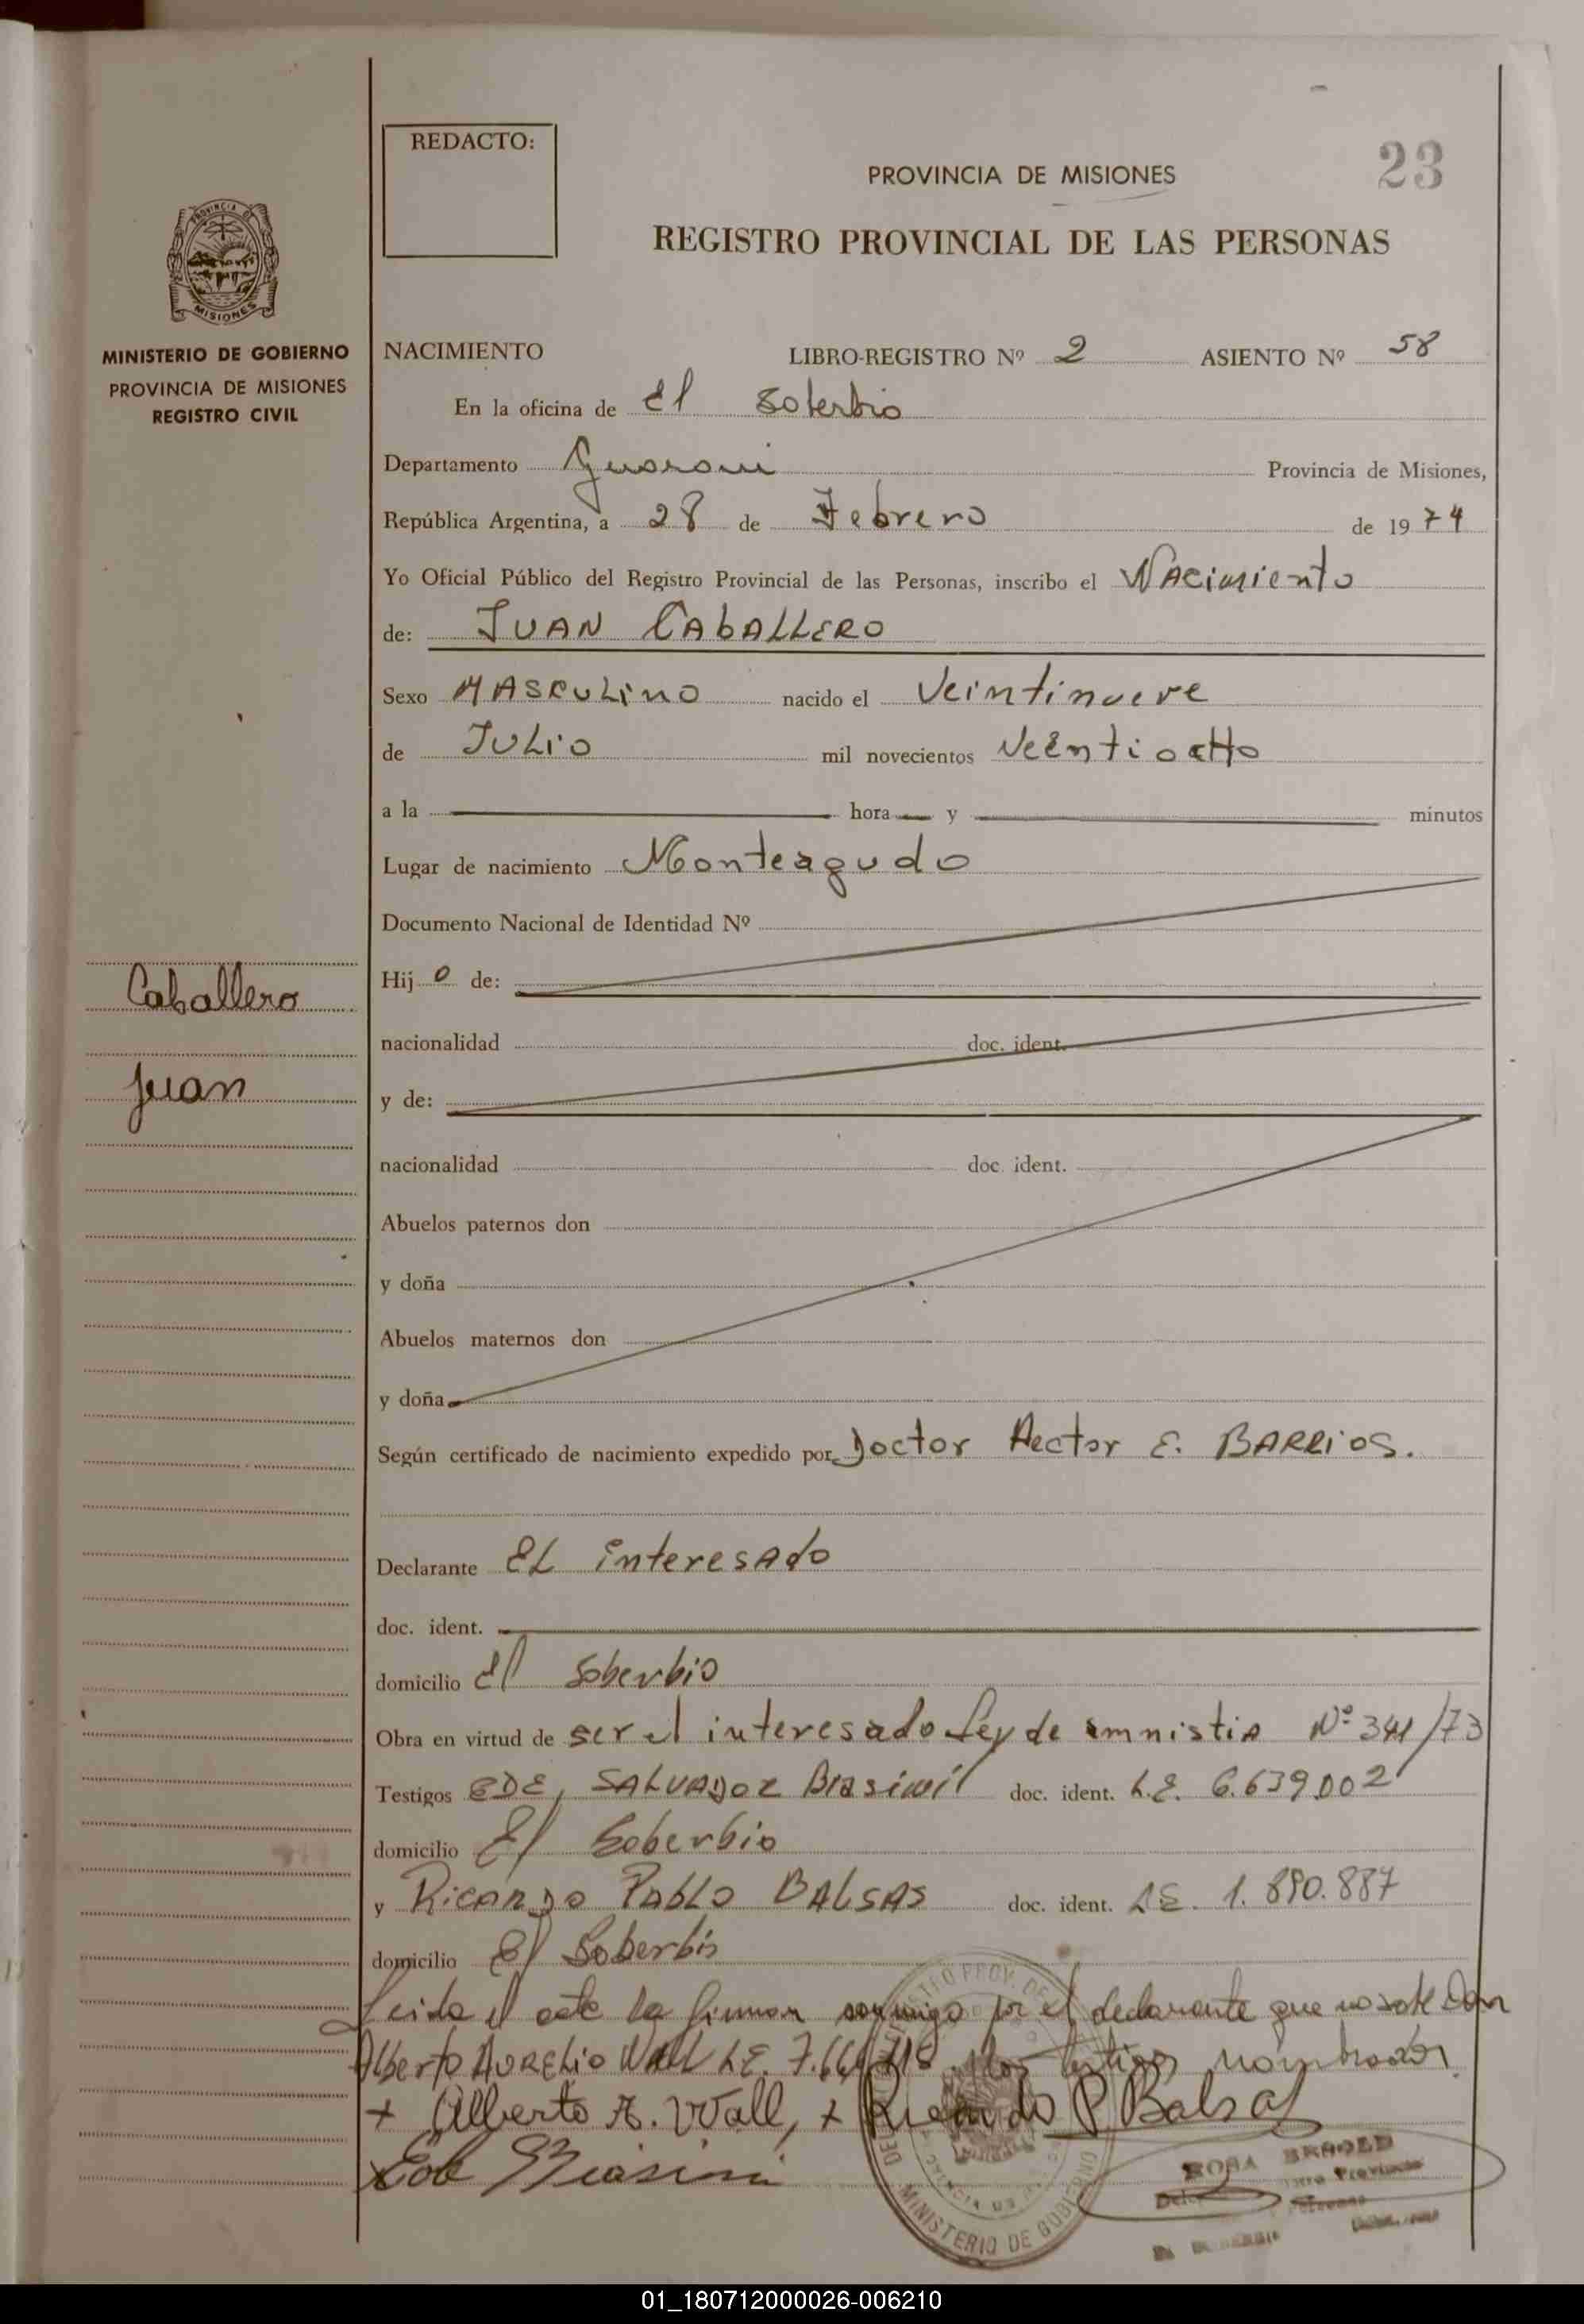 REDACTO:
PROVINCIA DE MISIONES
23
REGISTRO PROVINCIAL DE LAS PERSONAS
PROVINCIA DE
MISIONES
MINISTERIO DE GOBIERNO
PROVINCIA DE MISIONES
REGISTRO CIVIL
NACIMIENTO LIBRO-REGISTRO Nº 2 ASIENTO Nº 58
En la oficina de El Soberbio
Departamento Guarani Provincia de Misiones,
República Argentina, a 28 de Febrero de 1974
Yo Oficial Público del Registro Provincial de las Personas, inscribo el NAcimiento
de: JUAN CAbALLERO
Sexo MASCULiNO nacido el Veintinueve
de JULiO mil novecientos Veentiocho
a la hora y minutos
Lugar de nacimiento Monteagudo
Documento Nacional de Identidad Nº
Caballero
Hijo de:
nacionalidad doc. ident.
Juan
y de:
nacionalidad doc. ident.
Abuelos paternos don
y doña
Abuelos maternos don
y doña
Según certificado de nacimiento expedido por Doctor Hector E. BARRiOS.
Declarante EL interesAdo
doc. ident.
domicilio El Soberbio
Obra en virtud de ser el interesado Ley de amnistiA Nº 341/73
Testigos EDE, SALVADOR doc. ident. L.E. 6.639.002
domicilio El Soberbio
y Ricardo PAbLO BALSAS doc. ident. LE. 1.890.887
domicilio El Soberbio
Leida el acta la firman conmigo por el declarante que no sabe Don
Alberto AURELiO WALL LE. los testigos nombrados
+ Alberto A. Wall, + Ricardo P Balsas
MINISTERIO DE GOBIERNO
ROSA
01_180712000026-006210